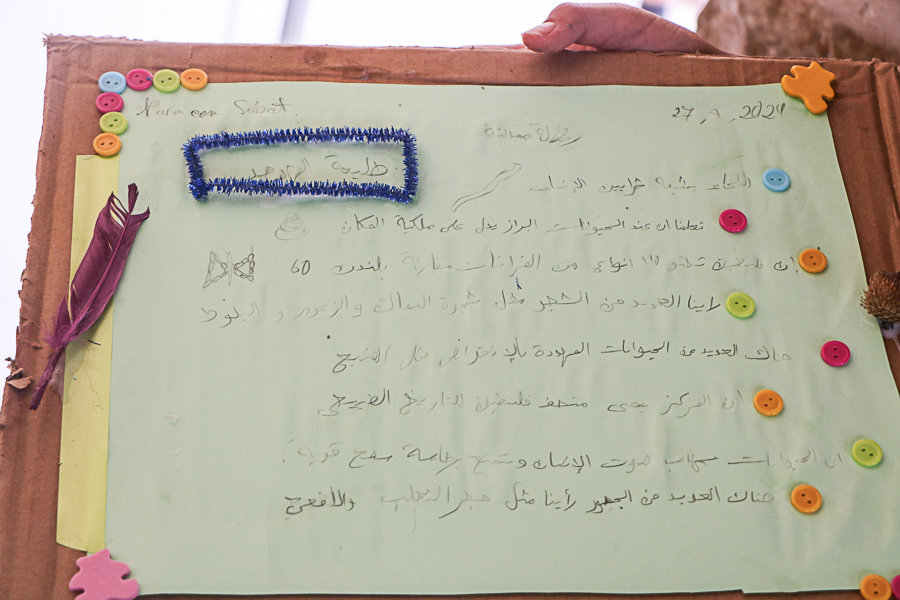 Narmeen Sabat
27, 9, 2024
رسالة صديقة
طليعة الهدهد
اللجاء يشبه شرايين الإنسان
تعلمنا ان عند الحيوانات البراز يدل على ملكية المكان
ان فلسطين تحتوي انواع من الفراشات مقارنة بلندن 60
راينا العديد من الشجر مثل شجرة السماق والزعرور و البلوط
هناك العديد من الحيوانات المهددة بالإنقراض مثل الضبع
ان المركز يسمى متحف فلسطين للتاريخ الطبيعي
ان الحيوانات تهاب صوت الإنسان وتتمتع بحاسة سمع قوية.
هناك العديد من الجحور رأينا مثل جحر الثعلب والأفعى